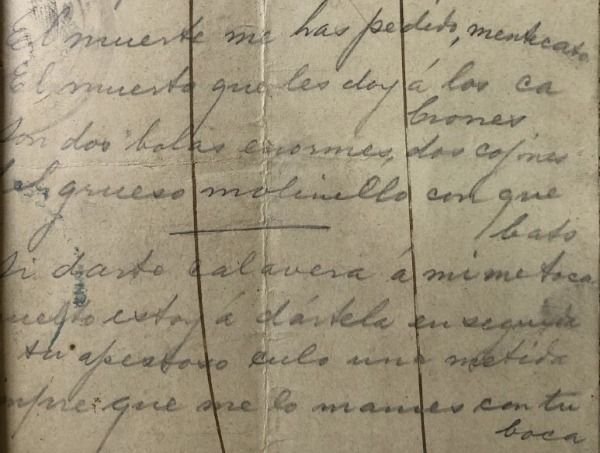 El muerte me has pedido, mentecato
El, muerto que les doy á los ca
brones
son dos bolas enormes, dos cojines
grueso molinello con que
bato
Si darte calavera á mi me toca
uelto estoy á dártela en seguida
tu apestoso culo una metida
mpre que me lo mames con tu
boca